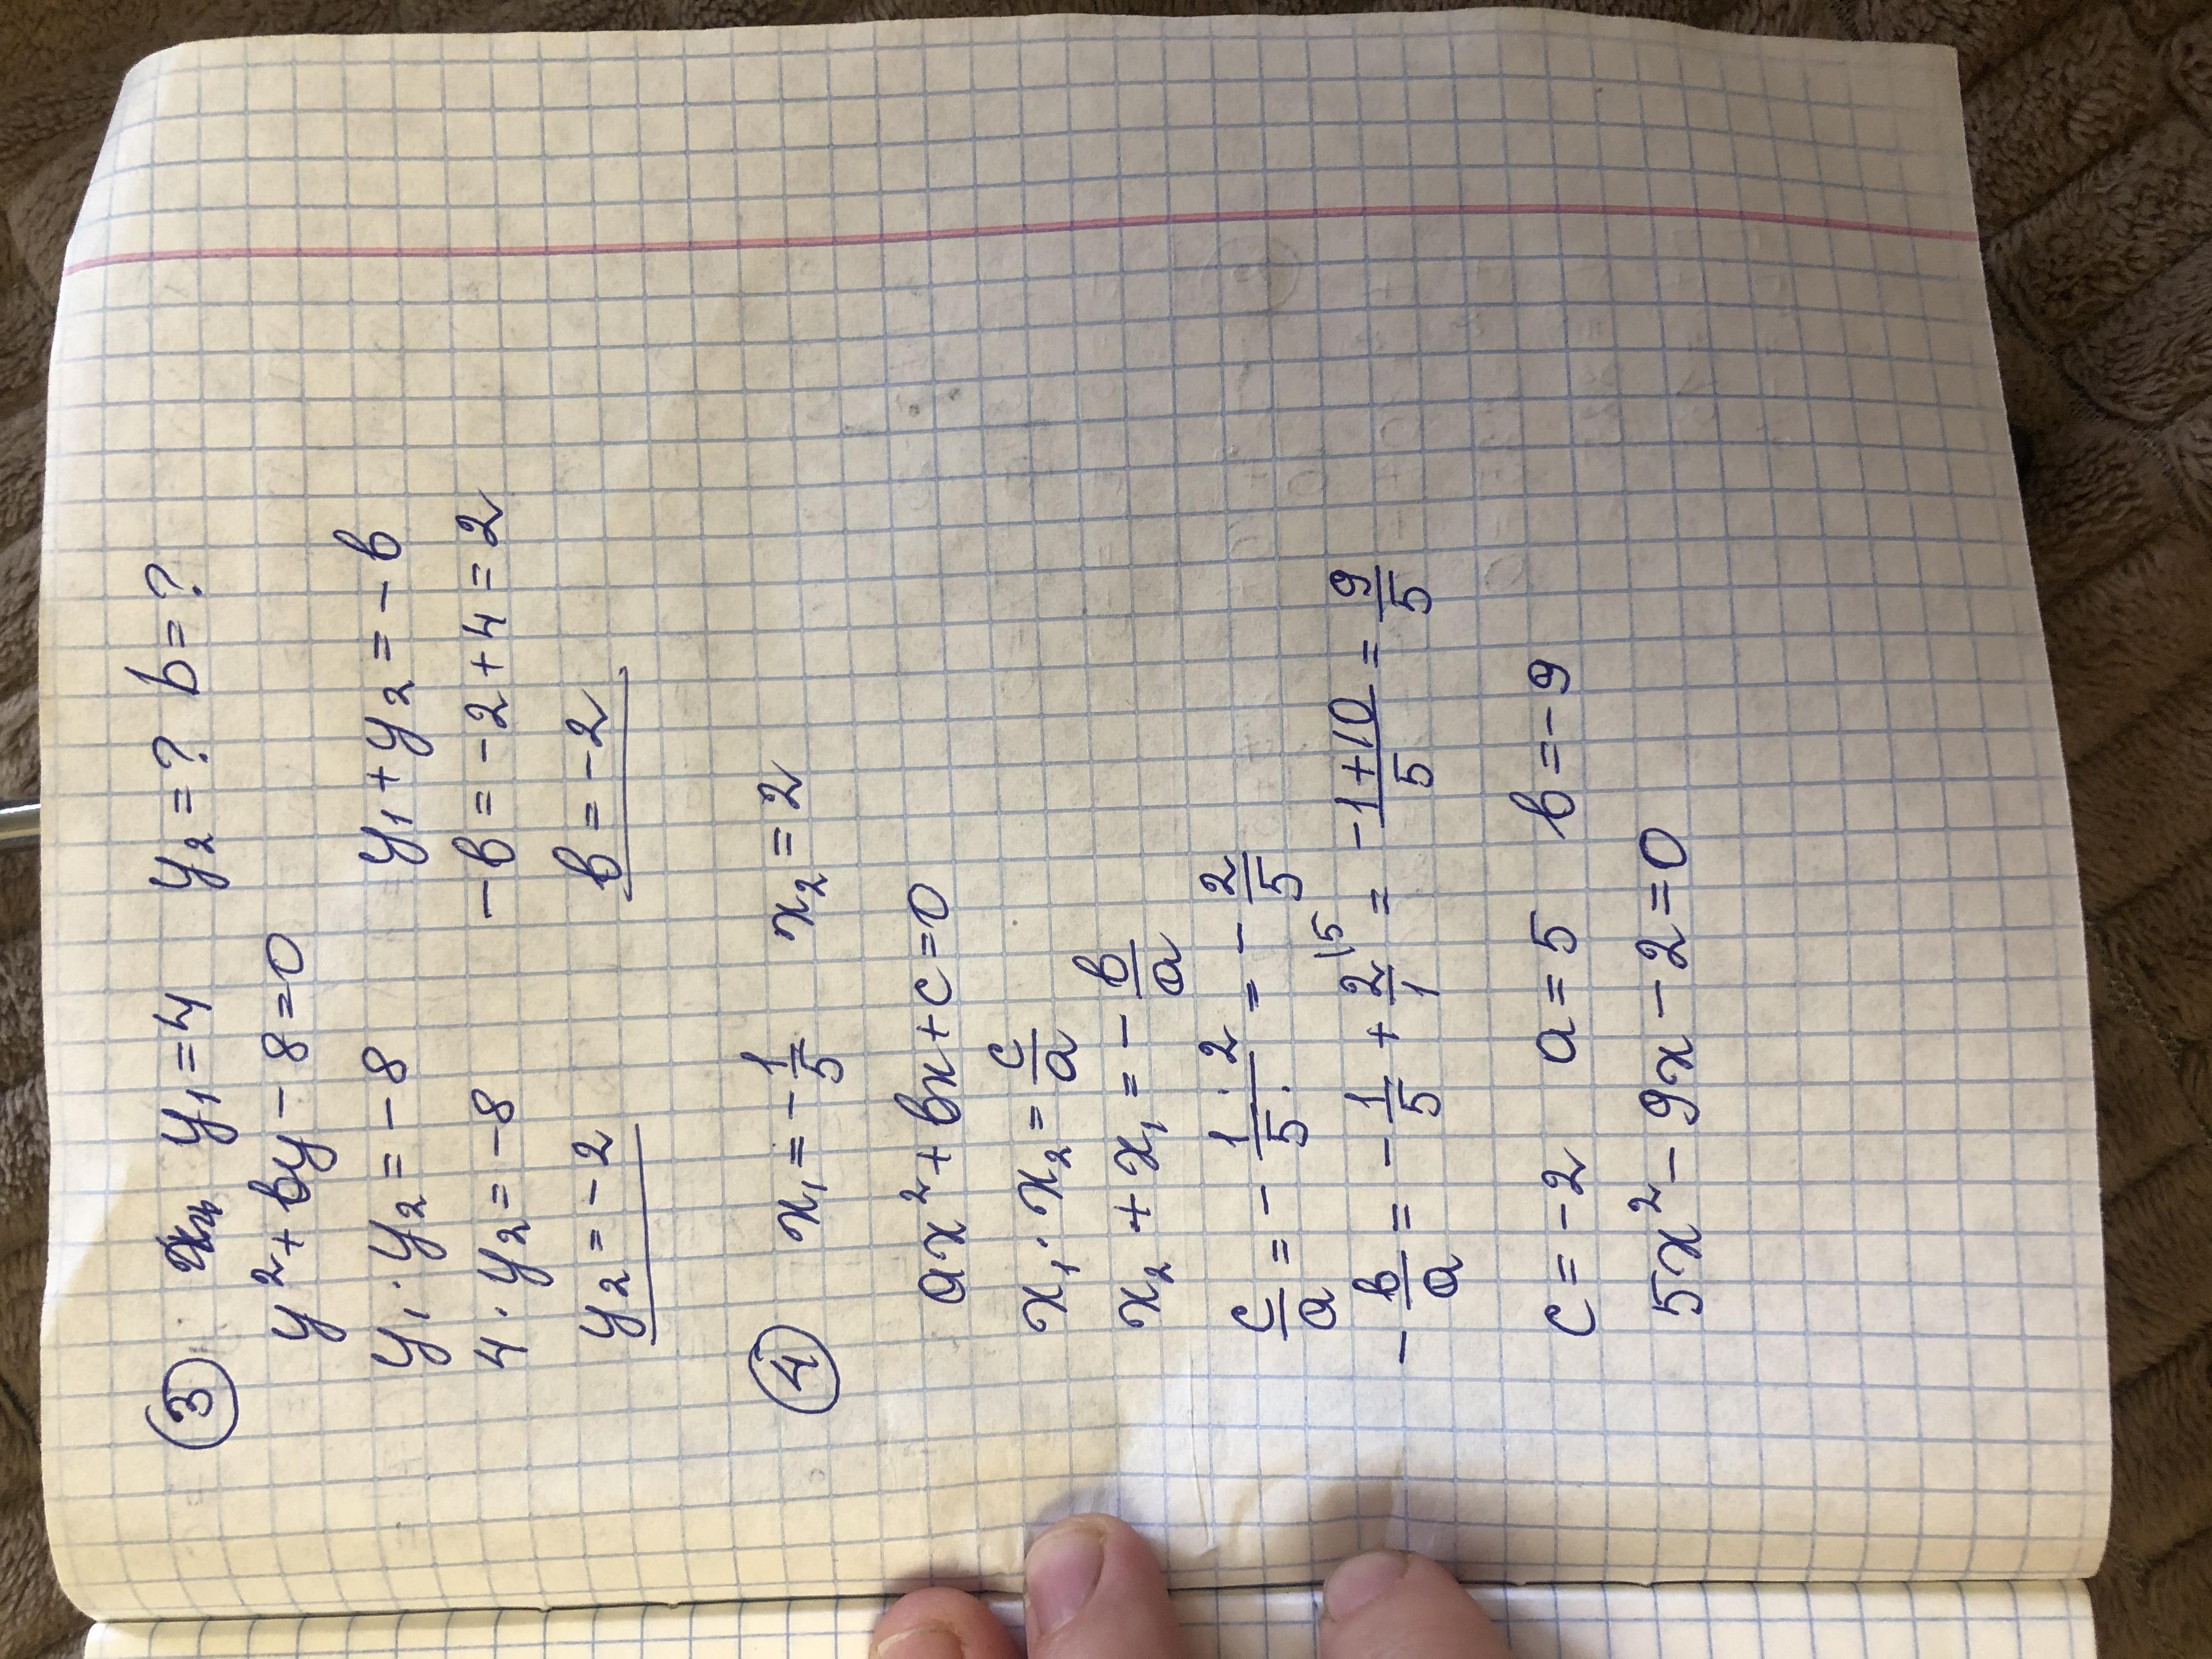 ③ y₁=4 y₂=? b=?
y²+by-8=0
y₁·y₂=-8 y₁+y₂=-b
4·y₂=-8 -b=-2+4=2
y₂=-2 b=-2
④ x₁=-1/5 x₂=2
ax²+bx+c=0
x₁·x₂=c/a
x₂+x₁=-b/a
c/a=-1/5·2=-2/5
-b/a=-1/5+2/1\5=(-1+10)/5=9/5
c=-2 a=5 b=-9
5x²-9x-2=0